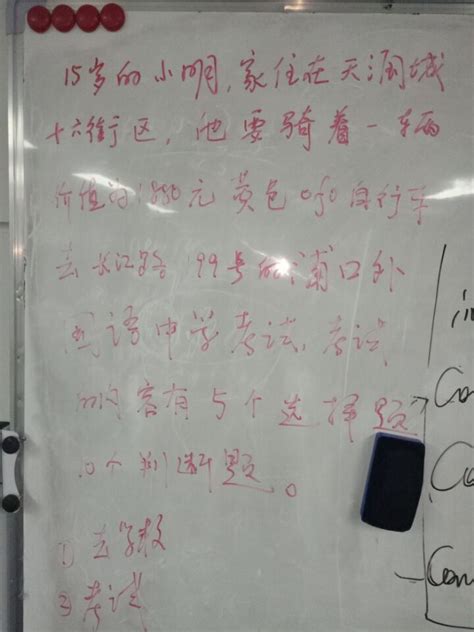 15岁的小明,家住在天润城
十六街区,他要骑着一辆
价值为1880元黄色ofo自行车
去长江路199号的浦口外
国语中学考试,考试
内容有5个选择题
10个判断题。
① 去学校
② 考试
in
Con
Co
- Com